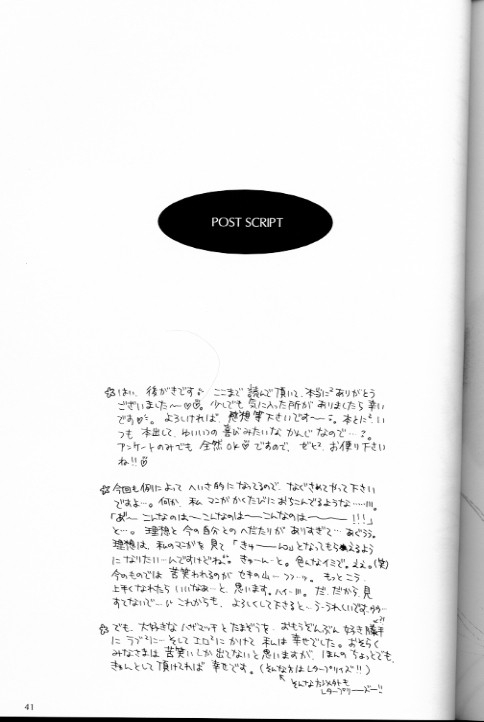 POST SCRIPT
☆はい、後がきです♪ ここまで 読んで頂いて、本当に²ありがとう
ございました〜♡。少しでも 気に入った所が ありましたら 幸い
です♡。よろしければ、感想等 下さいです〜。本とに²、い
つも 本出して、ゆいいつの 喜びみたいな かんじ なので…。
アンケートのみでも 全然OK♡ですので、ぜひ お便り下さい
ね!!♡
☆今回も例によって へいさ的に なってるので、なぐさめてやって下さい
ですよ…。何か、私 マンガ かくたびに おちこんでるような……。
「あ゛〜 こんなのは〜こんなのは〜こんなのは〜〜!!!」
と…。理想と 今の自分との へだたりが ありすぎて… あぐうう。
理想は、私のマンガを見て「きゅ〜ん」となってもらえるよう
になりたい〜んですけどね。きゅ〜んと。色んなイミで。ええ。(笑)
今のものでは 苦笑われるのが セキの山〜 もっとこう
上手くなれたら いいなあ〜と 思います。ハイ…。だ、だから、見
すてないで… これからも、よろしくして下さると…う・うれしいです
☆でも、大好きな
に ラブラブに〜 そして エロエロに かけて 私は 幸せでした。おそらく
みなさまは 苦笑いしか 出てないと 思いますが、ほんの ちょっとでも、
きゅんとして 頂ければ 幸せです。(そんな方は レタープリィズ!!)
そんな方じゃなくても
レタープリーズ!!
41